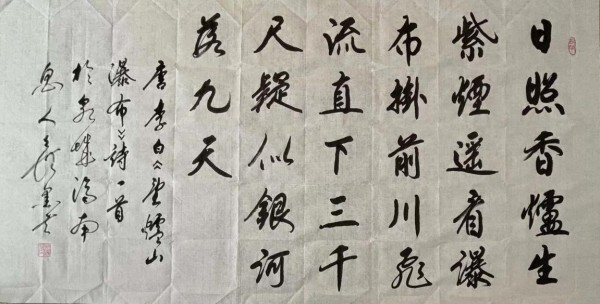 日照香爐生
紫煙遥看瀑
布掛前川飛
流直下三千
尺疑似銀河
落九天
唐李白《望廬山
瀑布》詩一首
於泉城济南